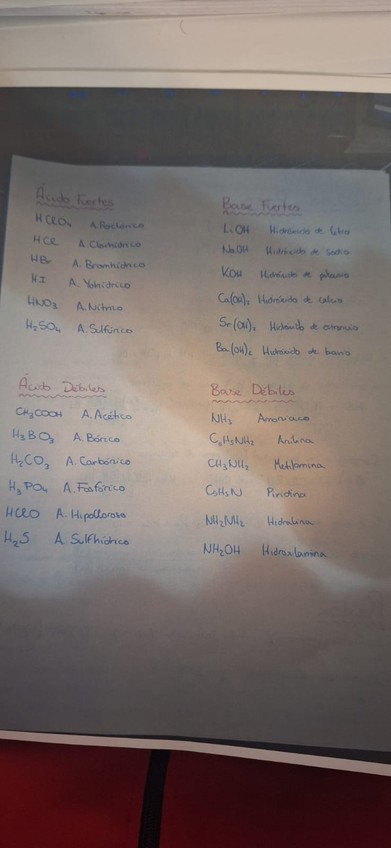 Ácido Fuertes
HClO₄ A. Perclórico
HCl A. Clorhídrico
HBr A. Bromhídrico
HI A. Yohídrico
HNO₃ A. Nítrico
H₂SO₄ A. Sulfúrico
Base Fuertes
LiOH Hidróxido de litio
NaOH Hidróxido de sodio
KOH Hidróxido de potasio
Ca(OH)₂ Hidróxido de calcio
Sr(OH)₂ Hidróxido de estroncio
Ba(OH)₂ Hidróxido de bario
Ácido Débiles
CH₃COOH A. Acético
H₃BO₃ A. Bórico
H₂CO₃ A. Carbónico
H₃PO₄ A. Fosfórico
HClO A. Hipocloroso
H₂S A. Sulfhídrico
Base Débiles
NH₃ Amoniaco
C₆H₅NH₂ Anilina
CH₃NH₂ Metilamina
C₅H₅N Piridina
NH₂NH₂ Hidralina
NH₂OH Hidroxilamina